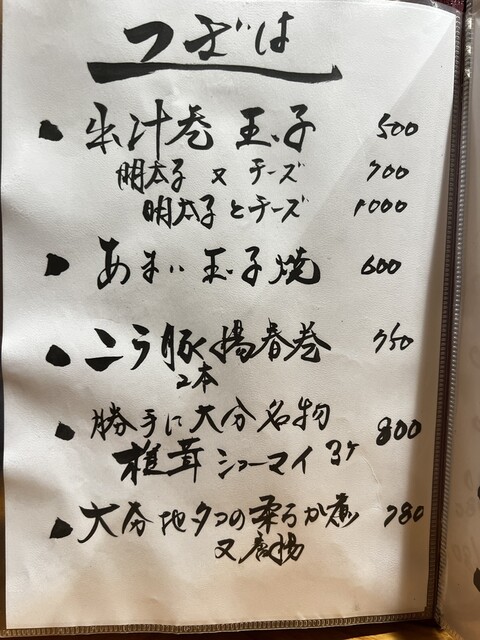 つぎは
出汁巻玉子 500
明太子又チーズ 700
明太子とチーズ 1000
あまい玉子焼 600
ニラ豚揚春巻 750
2本
勝手に大分名物 800
椎茸シューマイ 3ケ
大分地タコの柔らか煮 780
又唐揚